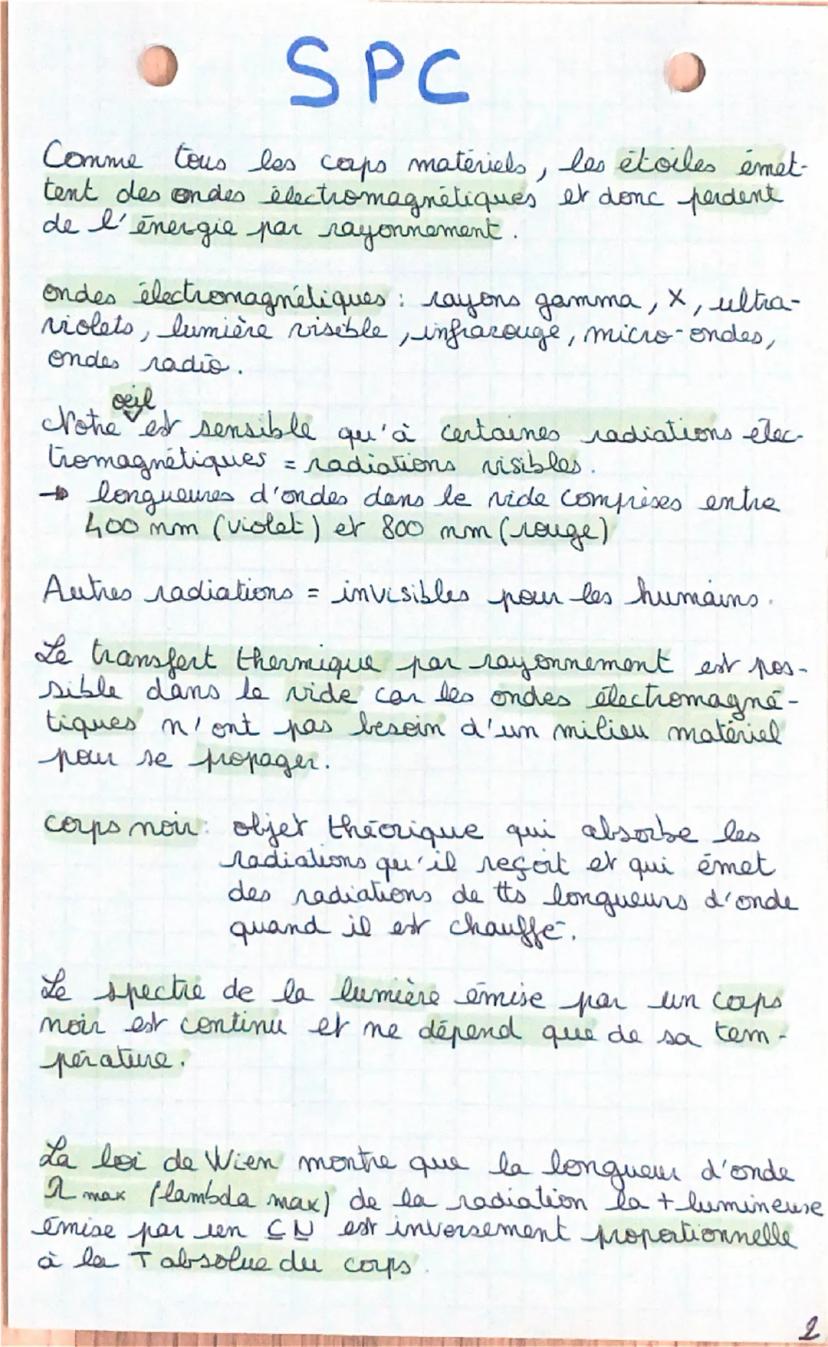 SPC
Comme tous les corps matériels, les étoiles émet-
tent des ondes électromagnétiques et donc perdent
de l'énergie par rayonnement.
ondes électromagnétiques : rayons gamma, X, ultra-
violets, lumière visible, infrarouge, micro-ondes,
ondes radio.
oeil
Notre est sensible qu'à certaines radiations élec-
tromagnétiques = radiations visibles.
→ longueures d'ondes dans le vide comprises entre
400 nm (violet) et 800 nm (rouge)
Autres radiations = invisibles pour les humains.
Le transfert thermique par rayonnement est pos-
sible dans le vide car les ondes électromagné-
tiques n'ont pas besoin d'un milieu matériel
pour se propager.
corps noir : objet théorique qui absorbe les
radiations qu'il reçoit et qui émet
des radiations de tts longueurs d'onde
quand il est chauffé.
Le spectre de la lumière émise par un corps
noir est continu et ne dépend que de sa tem-
pérature.
La loi de Wien montre que la longueur d'onde
λ max (lambda max) de la radiation la + lumineuse
émise par un CN est inversement proportionnelle
à la T absolue du corps.
2